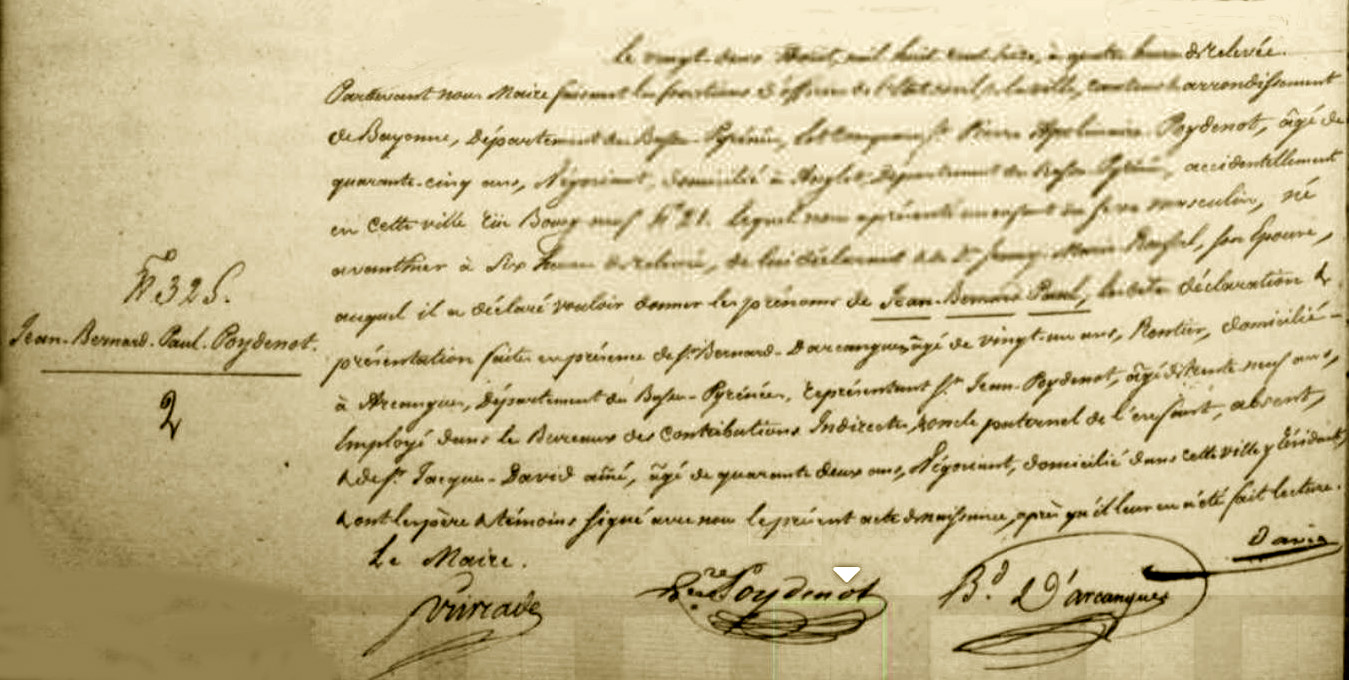 Le vingt-deux Août, mil huit cent seize, à quatre heures de relevée.
Pardevant nous Maire faisant les fonctions d'officier de l'Etat civil de la ville, canton & arrondissement
de Bayonne, Département des Basses-Pyrénées, est comparu Sr. Pierre Apolinaire Poydenot, âgé de
quarante-cinq ans, Négociant, domicilié à Anglet, Département des Basses-Pyrénées, accidentellement
en cette ville rue Bourg neuf No. 21. lequel nous a présenté un enfant du sexe masculin, né
avanthier à six heures de relevée, de lui déclarant & de De. Marie son Epouse,
auquel il a déclaré vouloir donner les prénoms de Jean-Bernard-Paul, les dites déclaration &
présentation faites en présence de Sr. Bernard-Darcangues, âgé de vingt-un ans, Rentier, domicilié
à Arcangues, Département des Basses-Pyrénées, représentant Sr. Jean-Poydenot, âgé de trente-neuf ans,
Employé dans les Bureaux des Contributions Indirectes, & oncle paternel de l'enfant, absent,
& de Sr. Jacques-David aîné, âgé de quarante deux ans, Négociant, domicilié dans cette ville y Résidant,
& ont les père & témoins signé avec nous le présent acte de naissance, après qu'il leur en a été fait lecture.
No 325.
Jean-Bernard-Paul-Poydenot.
2
Le Maire.
David
Poydenot
Bd. D'arcangues